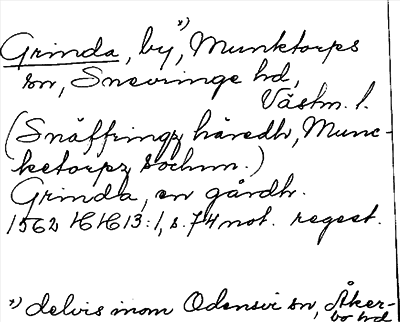 Grinda, by x), Munktorps
sn, Snevringe hd,
Västm. l.
(Snäffringz häredh, Munc-
ketorpz sochnn.)
Grinda, en gårdh.
1562 HH 13:1, s. 74 not. regest.
x) delvis inom Odensvi sn, Åker-
bo hd